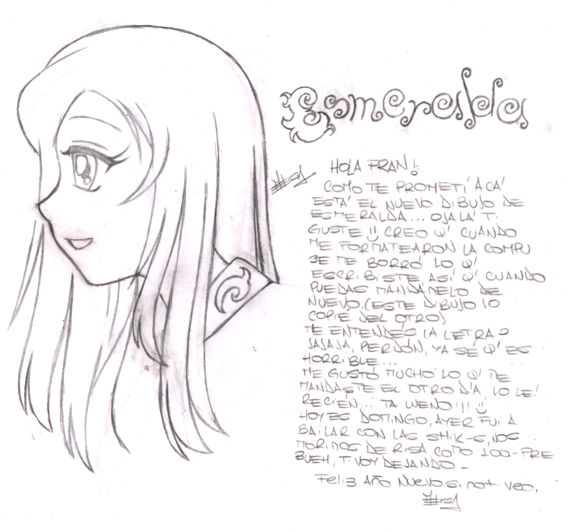 Esmeralda
HOLA FRAN!
COMO TE PROMETÍ ACÁ
ESTÁ EL NUEVO DIBUJO DE
ESMERALDA... OJALÁ T
GUSTE CREO Q' CUANDO
ME FORMATEARON LA COMPU
SE ME BORRÓ LO Q'
ESCRIBISTE ASÍ Q' CUANDO
PUEDAS MANDÁMELO DE
NUEVO. (ESTE DIBUJO LO
COPIÉ DEL OTRO)
ME ENTENDÉS LA LETRA?
JAJAJA, PERDÓN, YA SÉ Q' ES
HORRIBLE...
ME GUSTÓ MUCHO LO Q' ME
MANDASTE EL OTRO DÍA, LO LEÍ
RECIÉN... TA WENO!!!
HOY ES DOMINGO, AYER FUI A
BAILAR CON LAS SHIK-S, NOS
MORIMOS DE RISA COMO 100-PRE
BUEH, T VOY DEJANDO-
FELIZ AÑO NUEVO SI NOT VEO.